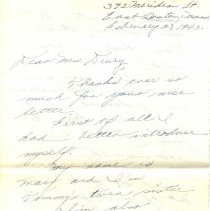 372 Meridian St
East Boston, Mass
February 23, 1943.
Dear Mrs. Dewy,
Thanks ever so
much for your nice
letter.
First of all I
had better introduce
myself.
My name is
Mary and I'm
Tommy's twin sister
I'm also